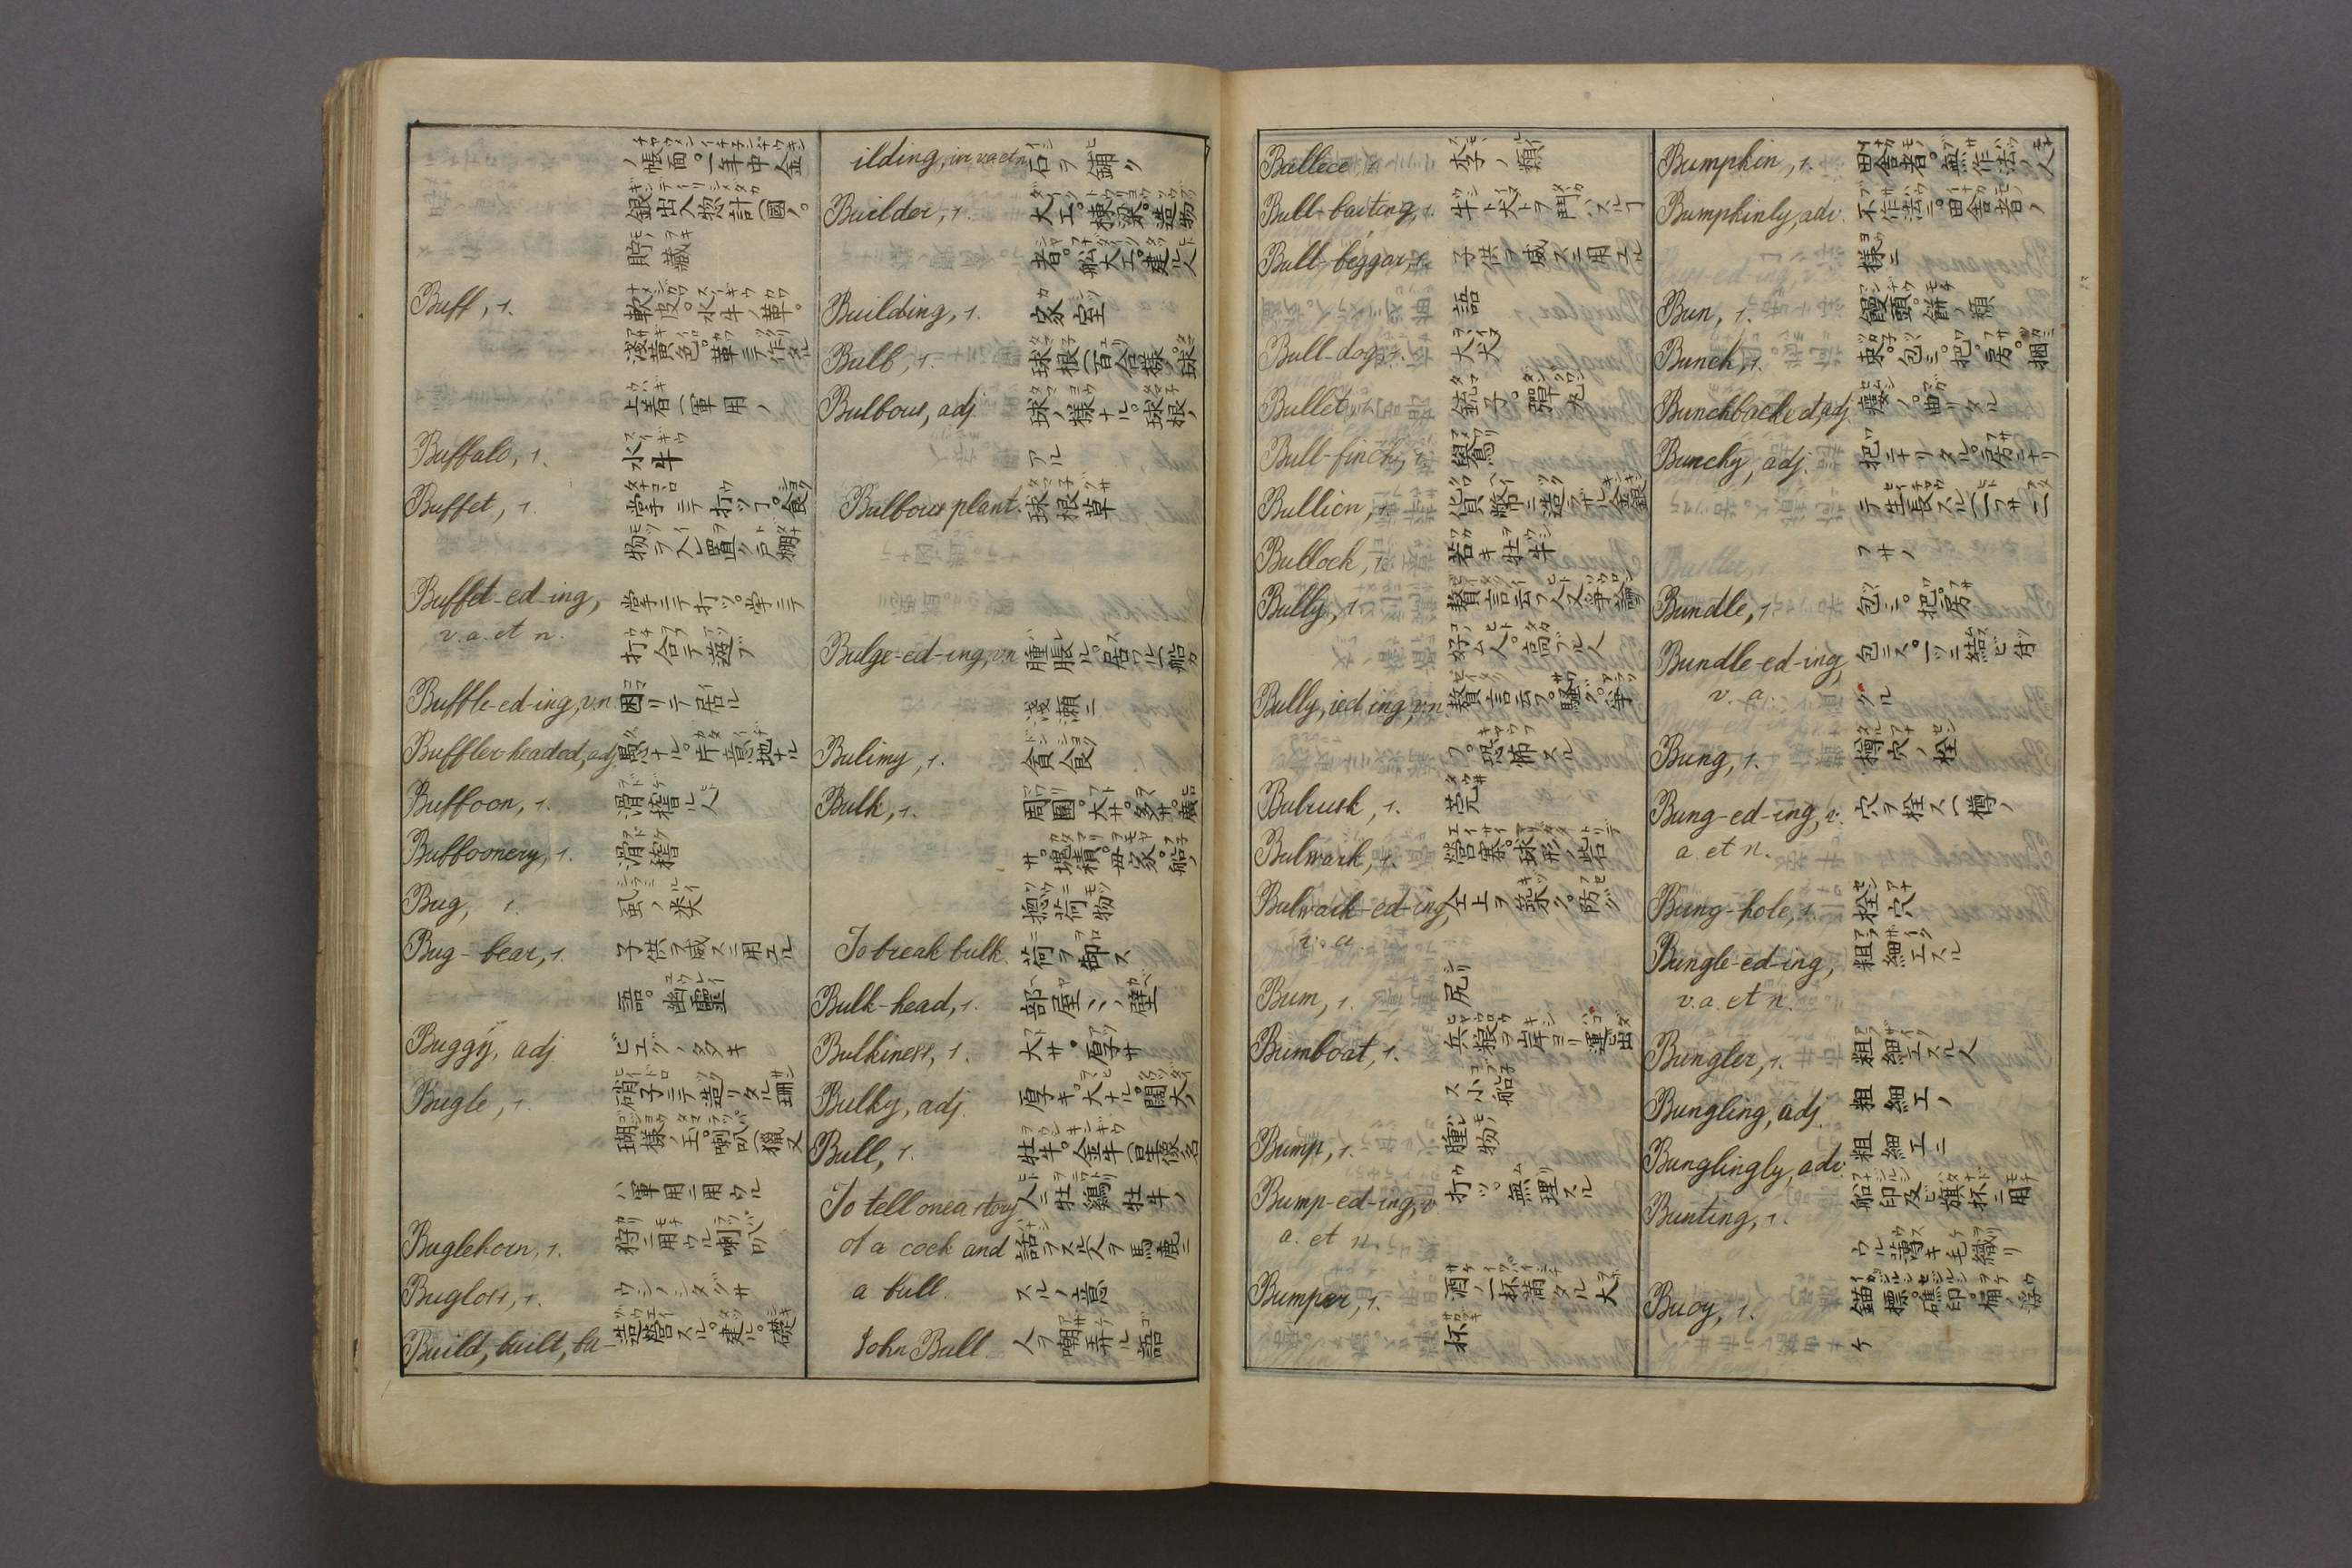 ノ帳面。一年中金
銀出入惣計(國ノ。
貯藏
Buff, s. 軟皮。水牛ノ革。
淺黄色。革ニテ作タル
上着(軍用ノ
Buffalo, s. 水牛
Buffet, s. 掌ニテ打ツヿ。食
物ヲ入レ置ク戸棚
Buffet-ed-ing, 掌ニテ打ツ。掌ニテ
v.a. et n. 打合テ遊ブ
Buffle-ed-ing, v.n. 困リテ居ル
Buffler-headed, adj. 愚ナル。片意地ナル
Buffoon, s. 滑稽ル人
Buffoonery, s. 滑稽
Bug, s. 虱ノ类
Bug-bear, s. 子供ヲ威スニ用エル
語。幽靈
Buggy, adj. 
Bugle, s. 硝子ニテ造リタル珊
瑚様ノ玉。喇叭(獵又
ハ軍用ニ用ウル
Buglehorn, s. 狩ニ用ウル喇叭
Bugloss, s. ウシノシタグサ
Build, built, bu- 造營スル。建ル。礎
ilding, in va et n. 石ヲ鋪ツ
Builder, s. 大工。棟梁。造物
者。舩大工。建ル人
Building, s. 家室
Bulb, s. 球根(百合様ノ球
Bulbous, adj. 球ノ様ナル。球根ノ
アル
Bulbous plant. 球根草
Bulge-ed-ing, v.n. 腫脹ル。居ワル(船ガ
淺瀬ニ
Bulimy, s. 貪食
Bulk, s. 周圍。大サ。多サ。廣
サ。塊積。毋家。船ノ
揔荷物
To break bulk. 荷ヲ卸ス
Bulk-head, s. 部屋〻ノ壁
Bulkiness, s. 大サ。厚サ
Bulky, adj. 厚キ。大ナル。闊大ノ
Bull, s. 牡牛。金牛(星像名
To tell one a story 人ニ牡鷄牡牛ノ
of a cock and 話ヲス(人ヲ馬鹿ニ
a bull. スルノ意
John Bull. 人ヲ嘲弄ル語
Bullece, s. 李ノ類
Bull-baiting, s. 牛ト犬トヲ鬥ハスルヿ
Bull-beggar, s. 子供ヲ威スニ用エル
語
Bull-dog, s. 大犬
Bullet, s. 銃子。彈丸
Bull-finch, s. 鷽
Bullion, s. 貨幣ニ造ラザル金銀
Bullock, s. 若キ牡牛
Bully, s. 贅言云フ人又爭論
好ム人。高ブル人
Bully, ied ing, v.n. 贅言云フ。騒グ。爭
フ。恐怖スル
Bulrush, s. 莞
Bulwark, s. 營寨。球形ノ砦
Bulwark-ed-ing, 仝上ヲ築ク。防グ
v.a.
Bum, s. 尻
Bumboat, s. 兵粮ヲ岸ヨリ運ビ出
ス小船
Bump, s. 腫物
Bump-ed-ing, v. 打ツ。無理スル
a. et n.
Bumper, s. 酒ノ一杯滿タル大
杯
Bumpkin, s. 田舎者。無作法ノ人
Bumpkinly, adv. 不作法ニ。田舎者ノ
様ニ
Bun, s. 饅頭。餅ノ類
Bunch, s. 束。包ミ。把。房。捆
Bunchbacked, adj. 瘻ノ。曲リタル
Bunchy, adj. 把ニナリタル。房ニナリ
テ生長スル(一フサ二
フサノ
Bundle, s. 包ミ。把。房
Bundle-ed-ing, 包ミス。一ツニ結ビ付
v.a. クル
Bung, s. 樽穴ノ栓
Bung-ed-ing, v. 穴ヲ栓ス(樽ノ
a. et n.
Bung-hole, s. 栓穴
Bungle-ed-ing, 粗細工スル
v.a. et n.
Bungler, s. 粗細工スル人
Bungling, adj. 粗細工ノ
Bunglingly, adv. 粗細工ニ
Bunting, s. 船印及ビ旗抔ニ用
ウル薄キ毛織リ
Buoy, s. 錨標。礁印。桶ノ浮
ケ